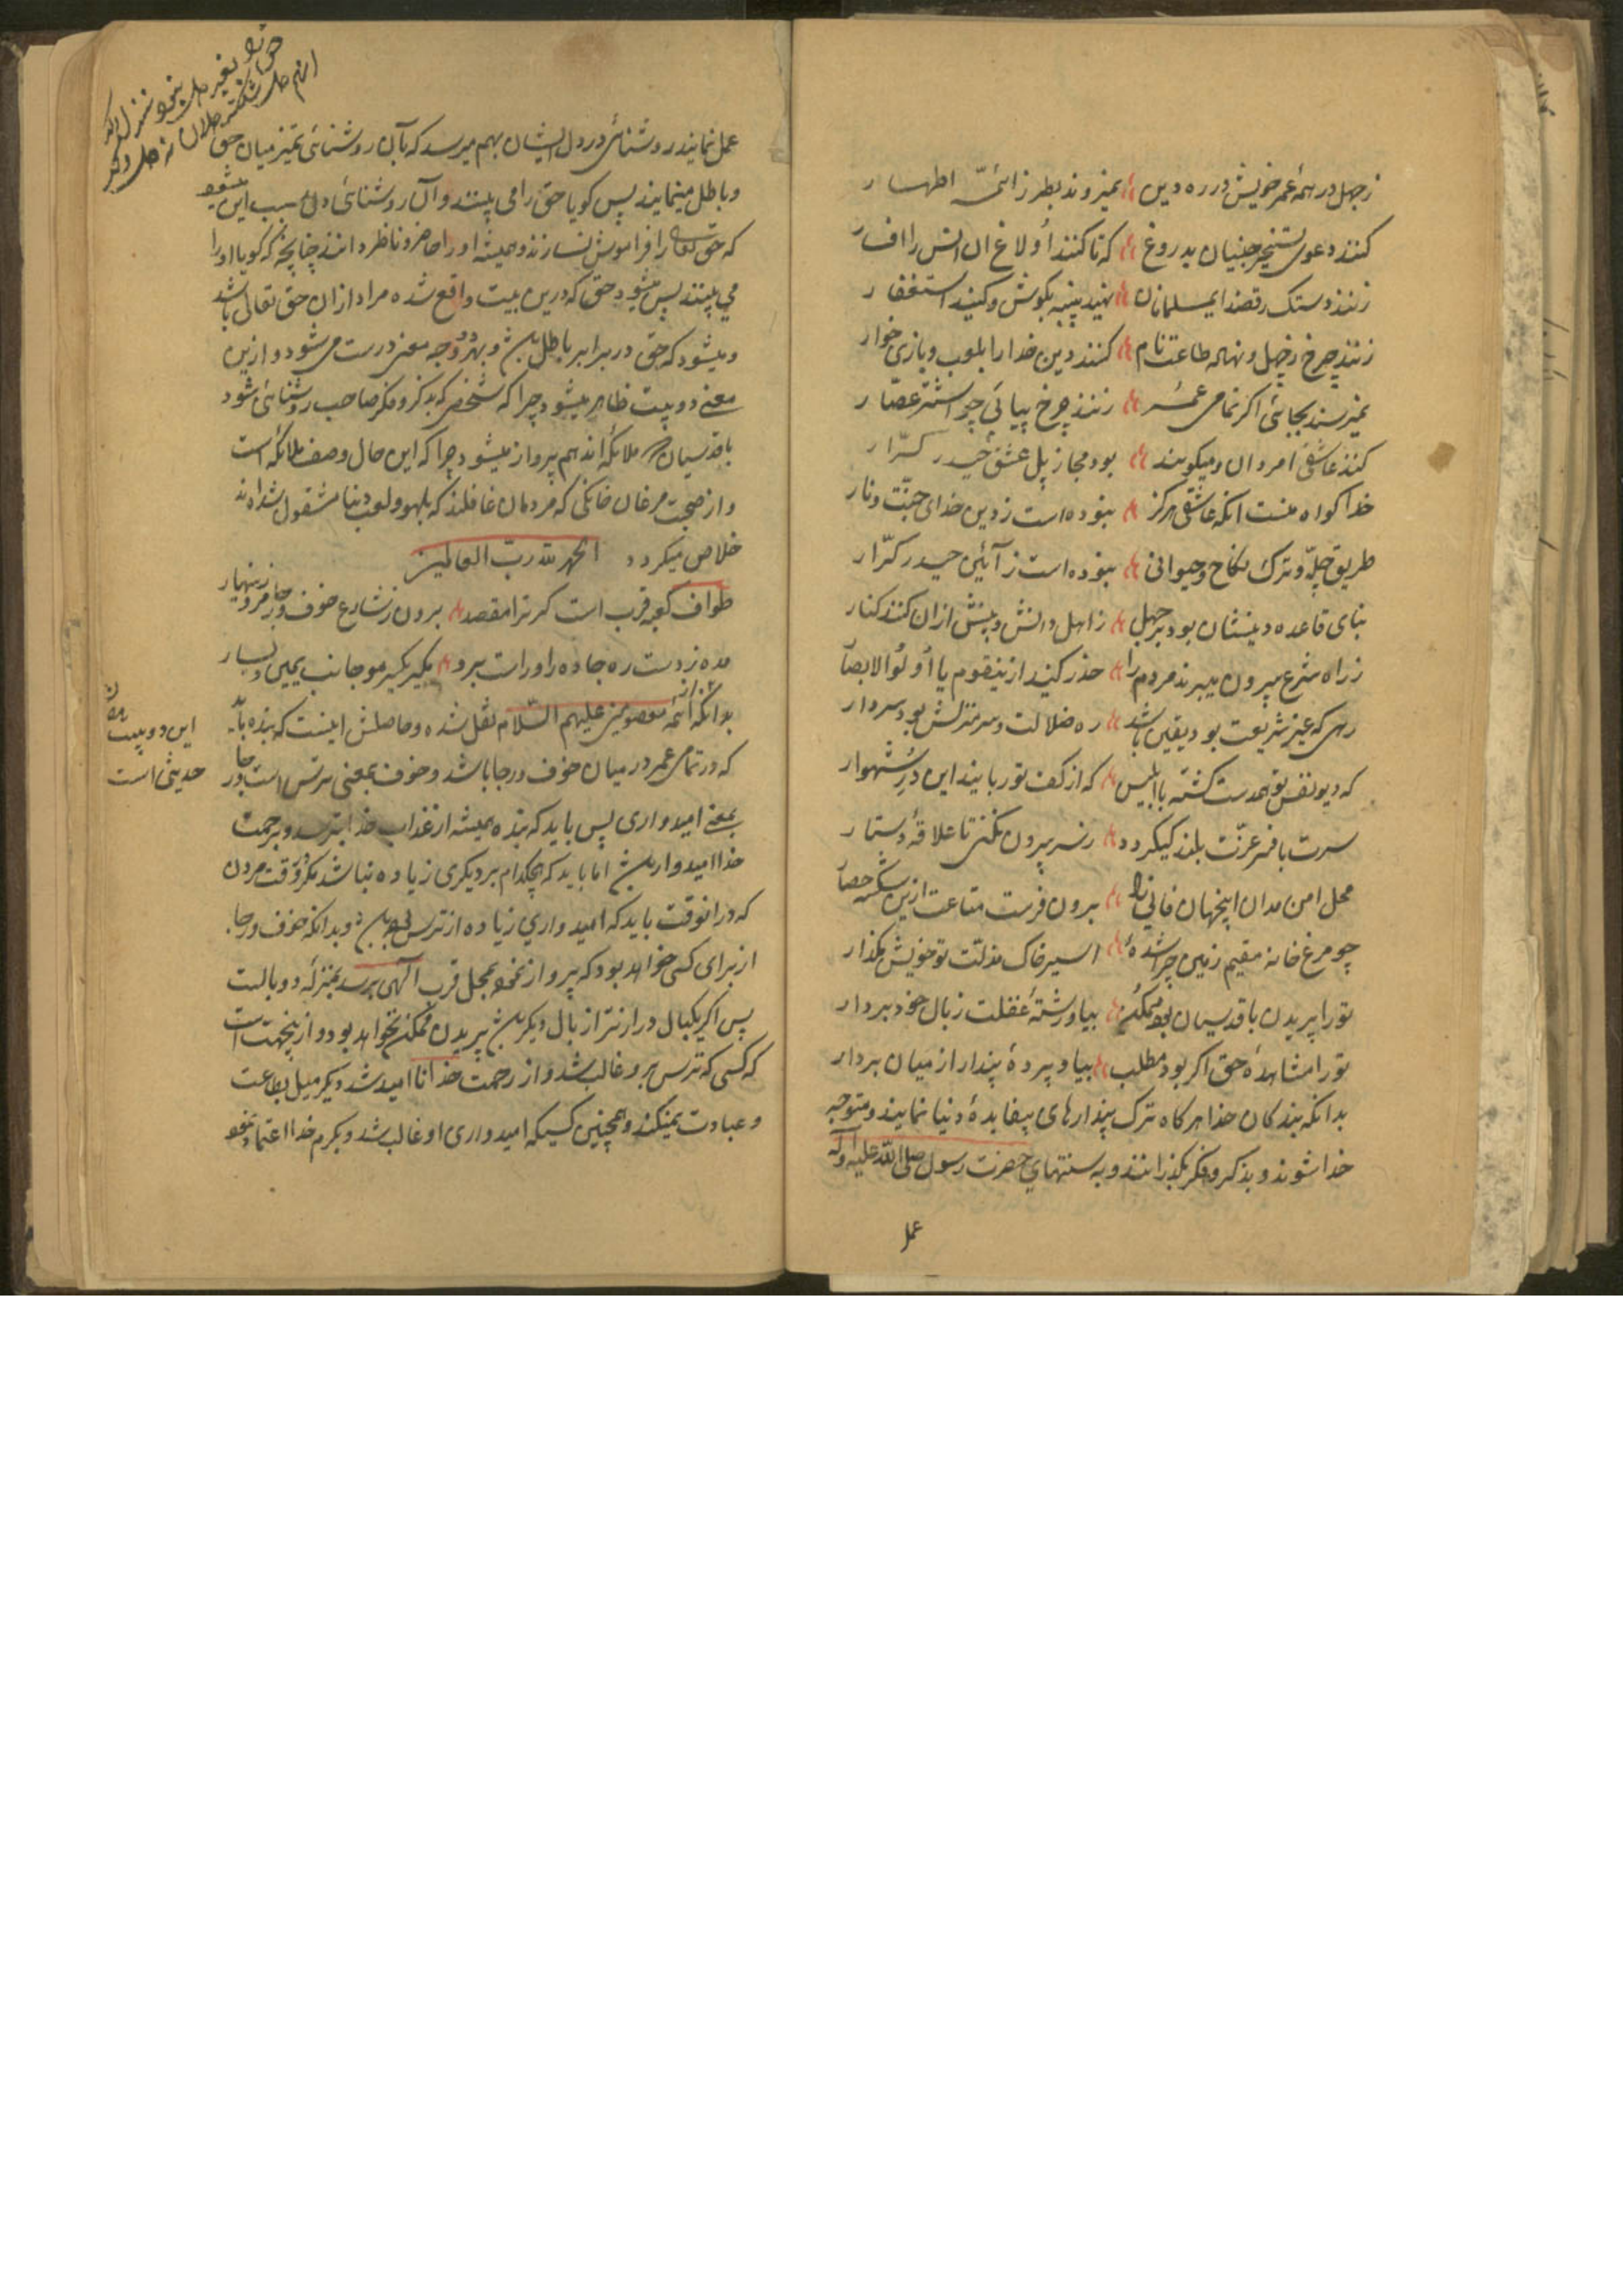 زجهل در همهٔ عمر خویش در ره دین نمیروند بطرز ائمّهٔ اطهار
کنند دعوی تسخیر جنیان بدروغ که تا کنند اولاغ ان انس را افسار
زنند دستک رقصند ایمسلمانان نهید پنبه بکوش و کنید استغفار
زنند چرخ زجهل و نهاله طاعت نام کنند دین خدا را بلعب و بازی خوار
نمیرسند بجائی اکر تمامی عمر زنند چرخ پیاپی چو اشتر عصّار
کنند عاشقی امردان و میکویند بود مجاز پل عشق حیدر کرّار
خدا کواه منست انکه عاشقی هرکز نبوده است ز دین خدای جنّت و نار
طریق چلّه و ترک نکاح و حیوانی نبوده است ز آئین حیدر کرّار
بنای قاعده دینشان بود بر جهل ز اهل دانش و بینش ازان کنند کنار
ز راه شرع بیرون میبرند مردم را حذر کنید ازینقوم یا أولو الابصار
رهی که غیر شریعت بود یقین باشد ره ضلالت و سرمنزلش بود سردار
که دیو نفس تو همدست کشته با ابلیس که از کفت تو ربایند این درّ شهوار
سرت بافسر عزّت بلند کی کردد ز سر بیرون نکنی تا علاقهٔ دستار
محل امن مدان اینجهان فانی را برون فرست متاعت ازین شکسته حصار
چو مرغ خانه مقیم زمین چرا شدهٔ اسیر خاک مذلّت تو خویش مکذار
تو را پریدن با قدسیان بود ممکن بیا و رشتهٔ غفلت ز بال خود بردار
تو را مشاهدهٔ حق اکر بود مطلب بیا و پردهٔ پندار از میان بردار
بدانکه بندکان خدا هرکاه ترک پندارهای بیفایدهٔ دنیا نمایند و متوجه
خدا شوند و بذکر و فکر بکذرانند و به سنتهای حضرت رسول صلی الله علیه وآله
عمل
عمل نمایند روشنائی در دل ایشان بهم میرسد که بآن روشنائی تمیز میان حق
و باطل مینمایند پس کویا حق را می بینند و آن روشنائی دل سبب این میشود
که حق تعالی را فراموش نسازند و همیشه او را حاضر و ناظر دانند چنانچه که کویا او را
می بینند پس میشود حق که درین بیت واقع شده مراد ازان حق تعالی باشد
و میشود که حق در برابر باطل باشد و بهر دو وجه معنی درست می شود و ازین
معنی دو بیت ظاهر میشود چرا که شخصی که بذکر و فکر صاحب روشنائی شود
با قدسیان که ملائکه اند هم پرواز میشود چرا که این حال وصف ملائکه است
و از صحبت مرغان خانکی که مردمان غافلند که بلهو و لعب دنیا مشغول شده اند
خلاص میکردد الحمد لله ربّ العالمین
طواف کعبه قرب است کر ترا مقصد برون ز شارع خوف و رجا مرو زینهار
مده ز دست ره جاده را و راست برو مکیر یکسر مو جانب یمین و یسار
بدانکه از ائمّهٔ معصومین علیهم السّلام نقل شده و حاصلش اینست که بنده باید
که در تمامی عمر در میان خوف و رجا باشد و خوف بمعنی ترس است و رجا
بمعنی امیدواری پس باید که بنده همیشه از عذاب خدا بترسد و برحمت
خدا امیدوار باشد اما باید که هیچکدام بر دیکری زیاده نباشد مکر وقت مردن
که در انوقت باید که امیدواری زیاده از ترس بوده باشد و بدانکه خوف و رجا
از برای کسی خواهد بود که پرواز نموده بمحل قرب الهی برسد بمنزلهٔ دو بالست
پس اکر یکبال درازتر از بال دیکر باشد پریدن ممکن نخواهد بود و از ینجهت است
که کسی که ترس برو غالب شد و از رحمت خدا نا امید شد دیکر میل بطاعت
و عبادت نمیکند و همچنین کسیکه امیدواری او غالب شد و بکرم خدا اعتماد نمود
این دو بیت
حدیثی است